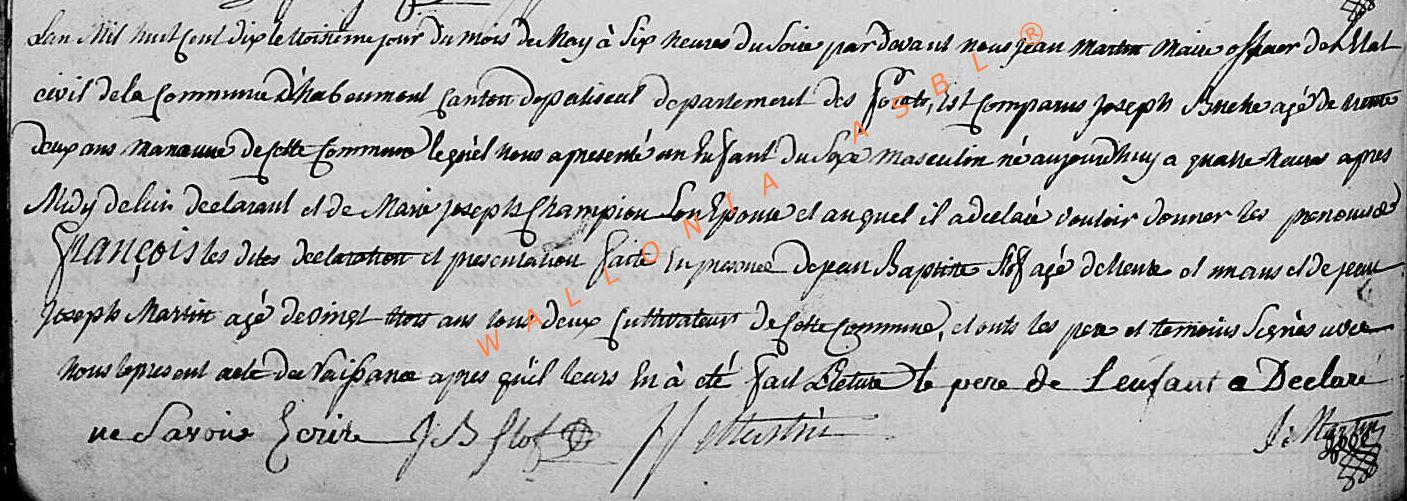 Lan Mil huit Cent dix le troisieme jour du mois de May à Six heures du Soire pardevant nous jean Martin Maire officier de l'Etat
civil de la Commune d'haboumont Canton depaliseul departement des forets, Est Comparus Joseph agé de trente
deux ans manœuvre de cette Commune lequel nous apresenté un Enfant du Sexe masculin né aujourdhuy a quatre heures apres
Midy delui declarant et de Marie Joseph Champion Son Epouse et auquel il adeclaré vouloir donner les prenoms de
François les dites declaration et presentation faite En presence dejean Baptiste Slof agé detrente et un ans et de jean
Joseph Martin agé devingt trois ans tous deux Cultivateur de Cette Commune, et onts les pere et temoins Signés avec
Nous lepresent acte de Naissance apres quil leurs En à été fait Lecture le pere de Lenfant a Declaré
ne Savoir Ecrire J B Slof J J Martin J: Martin
WALLONIA ASBL ®